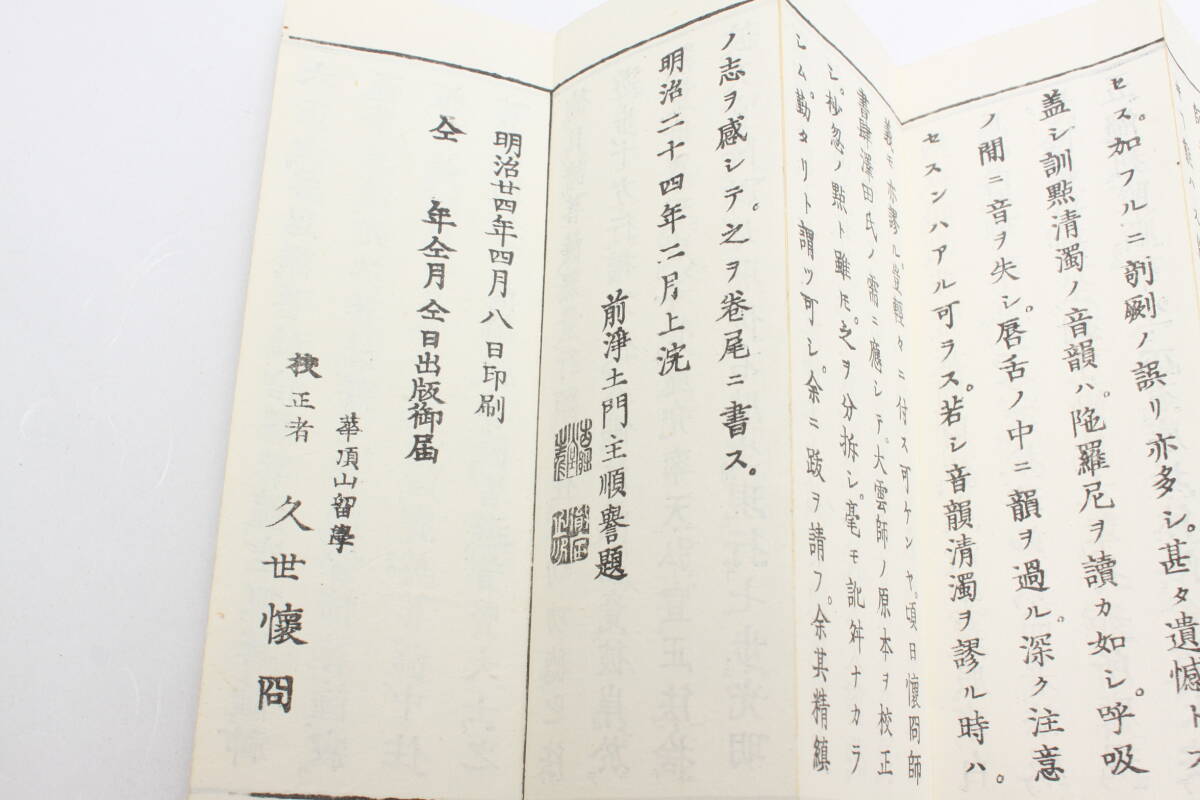 セス。加フルニ剞劂ノ誤リ亦多シ。甚タ遺憾トス
盖シ訓點清濁ノ音韻ハ。陁羅尼ヲ讀カ如シ。呼吸
ノ間ニ音ヲ失シ。唇舌ノ中ニ韻ヲ過ル。深ク注意
セスンハアル可ラス。若シ音韻清濁ヲ謬ル時ハ。
義モ亦謬ル。豈輕々ニ付ス可ケンヤ。頃日懷冏師
書肆澤田氏ノ需ニ應シテ。大雲師ノ原本ヲ校正
シ。杪忽ノ㸃ト雖𪜈。之ヲ分拆シ。毫モ訛舛ナカラ
シム。勤タリト謂ツ可シ。余ニ跋ヲ請フ。余其精縝
ノ志ヲ感シテ。之ヲ卷尾ニ書ス。
明治二十四年二月上浣
前淨土門主順譽題
明治廿四年四月八日印刷
仝年仝月仝日出版御届
華頂山留學
挍正者 久世懷冏